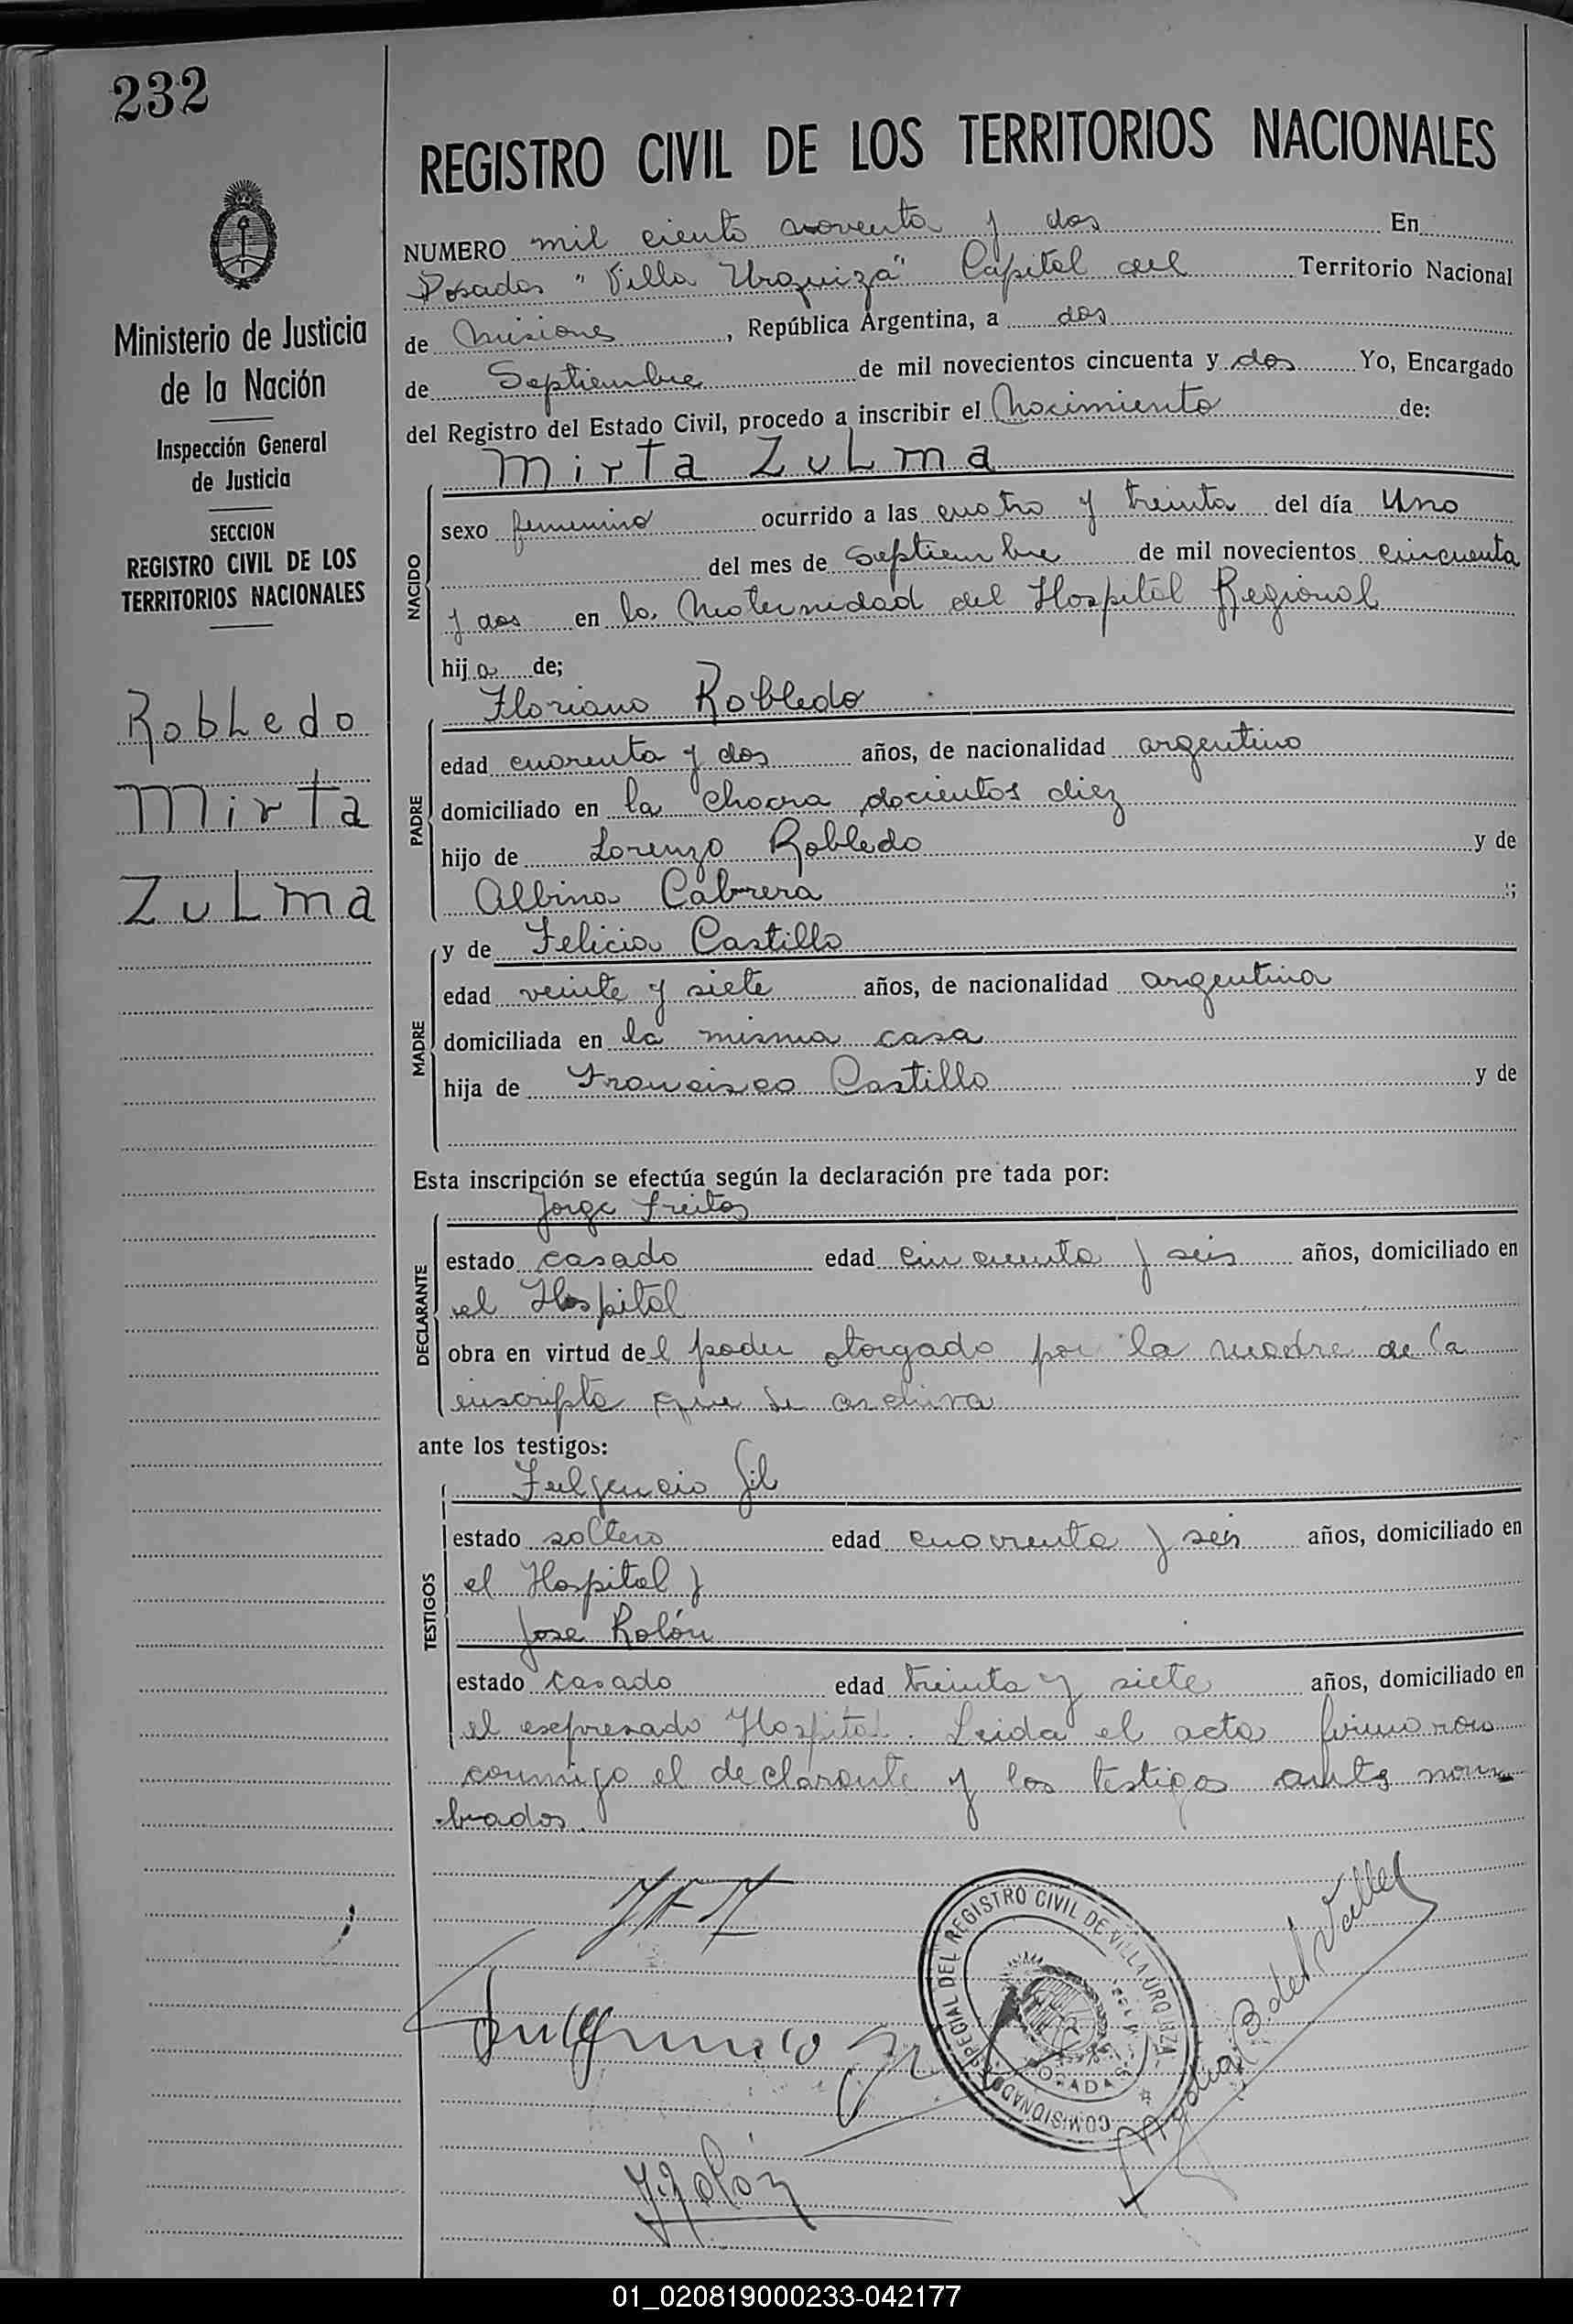 232
Ministerio de Justicia
de la Nación
Inspección General
de Justicia
SECCION
REGISTRO CIVIL DE LOS
TERRITORIOS NACIONALES
Robledo
Mirta
Zulma
REGISTRO CIVIL DE LOS TERRITORIOS NACIONALES
NUMERO mil ciento noventa y dos En
Posadas "Villa Urquiza" Capital del Territorio Nacional
de Misiones, República Argentina, a dos
de Septiembre de mil novecientos cincuenta y dos Yo, Encargado
del Registro del Estado Civil, procedo a inscribir el Nacimiento de:
Mirta Zulma
NACIDO
sexo femenino ocurrido a las cuatro y treinta del día Uno
del mes de Septiembre de mil novecientos cincuenta
y dos en la Maternidad del Hospital Regional
hija de;
Floriano Robledo
PADRE
edad cuarenta y dos años, de nacionalidad argentino
domiciliado en la Chacra docientos diez
hijo de Lorenzo Robledo y de
Albina Cabrera ;
MADRE
y de Felicia Castillo
edad veinte y siete años, de nacionalidad argentina
domiciliada en la misma casa
hija de Francisco Castillo y de
Esta inscripción se efectúa según la declaración pre tada por:
Jorge Freitas
DECLARANTE
estado casado edad cincuenta y seis años, domiciliado en
el Hospital
obra en virtud del poder otorgado por la madre de la
inscripta que se archiva
ante los testigos:
Fulgencio Gil
TESTIGOS
estado soltero edad cuarenta y seis años, domiciliado en
el Hospital y
Jose Rolón
estado casado edad treinta y siete años, domiciliado en
el expresado Hospital. Leida el acta firmaron
conmigo el declarante y los testigos antes nom
brados.
COMISIONADO ESPECIAL DEL REGISTRO CIVIL DE VILLA URQUIZA
POSADAS
Fulgencio Gil
J. Rolón
B. del Valle
01_020819000233-042177